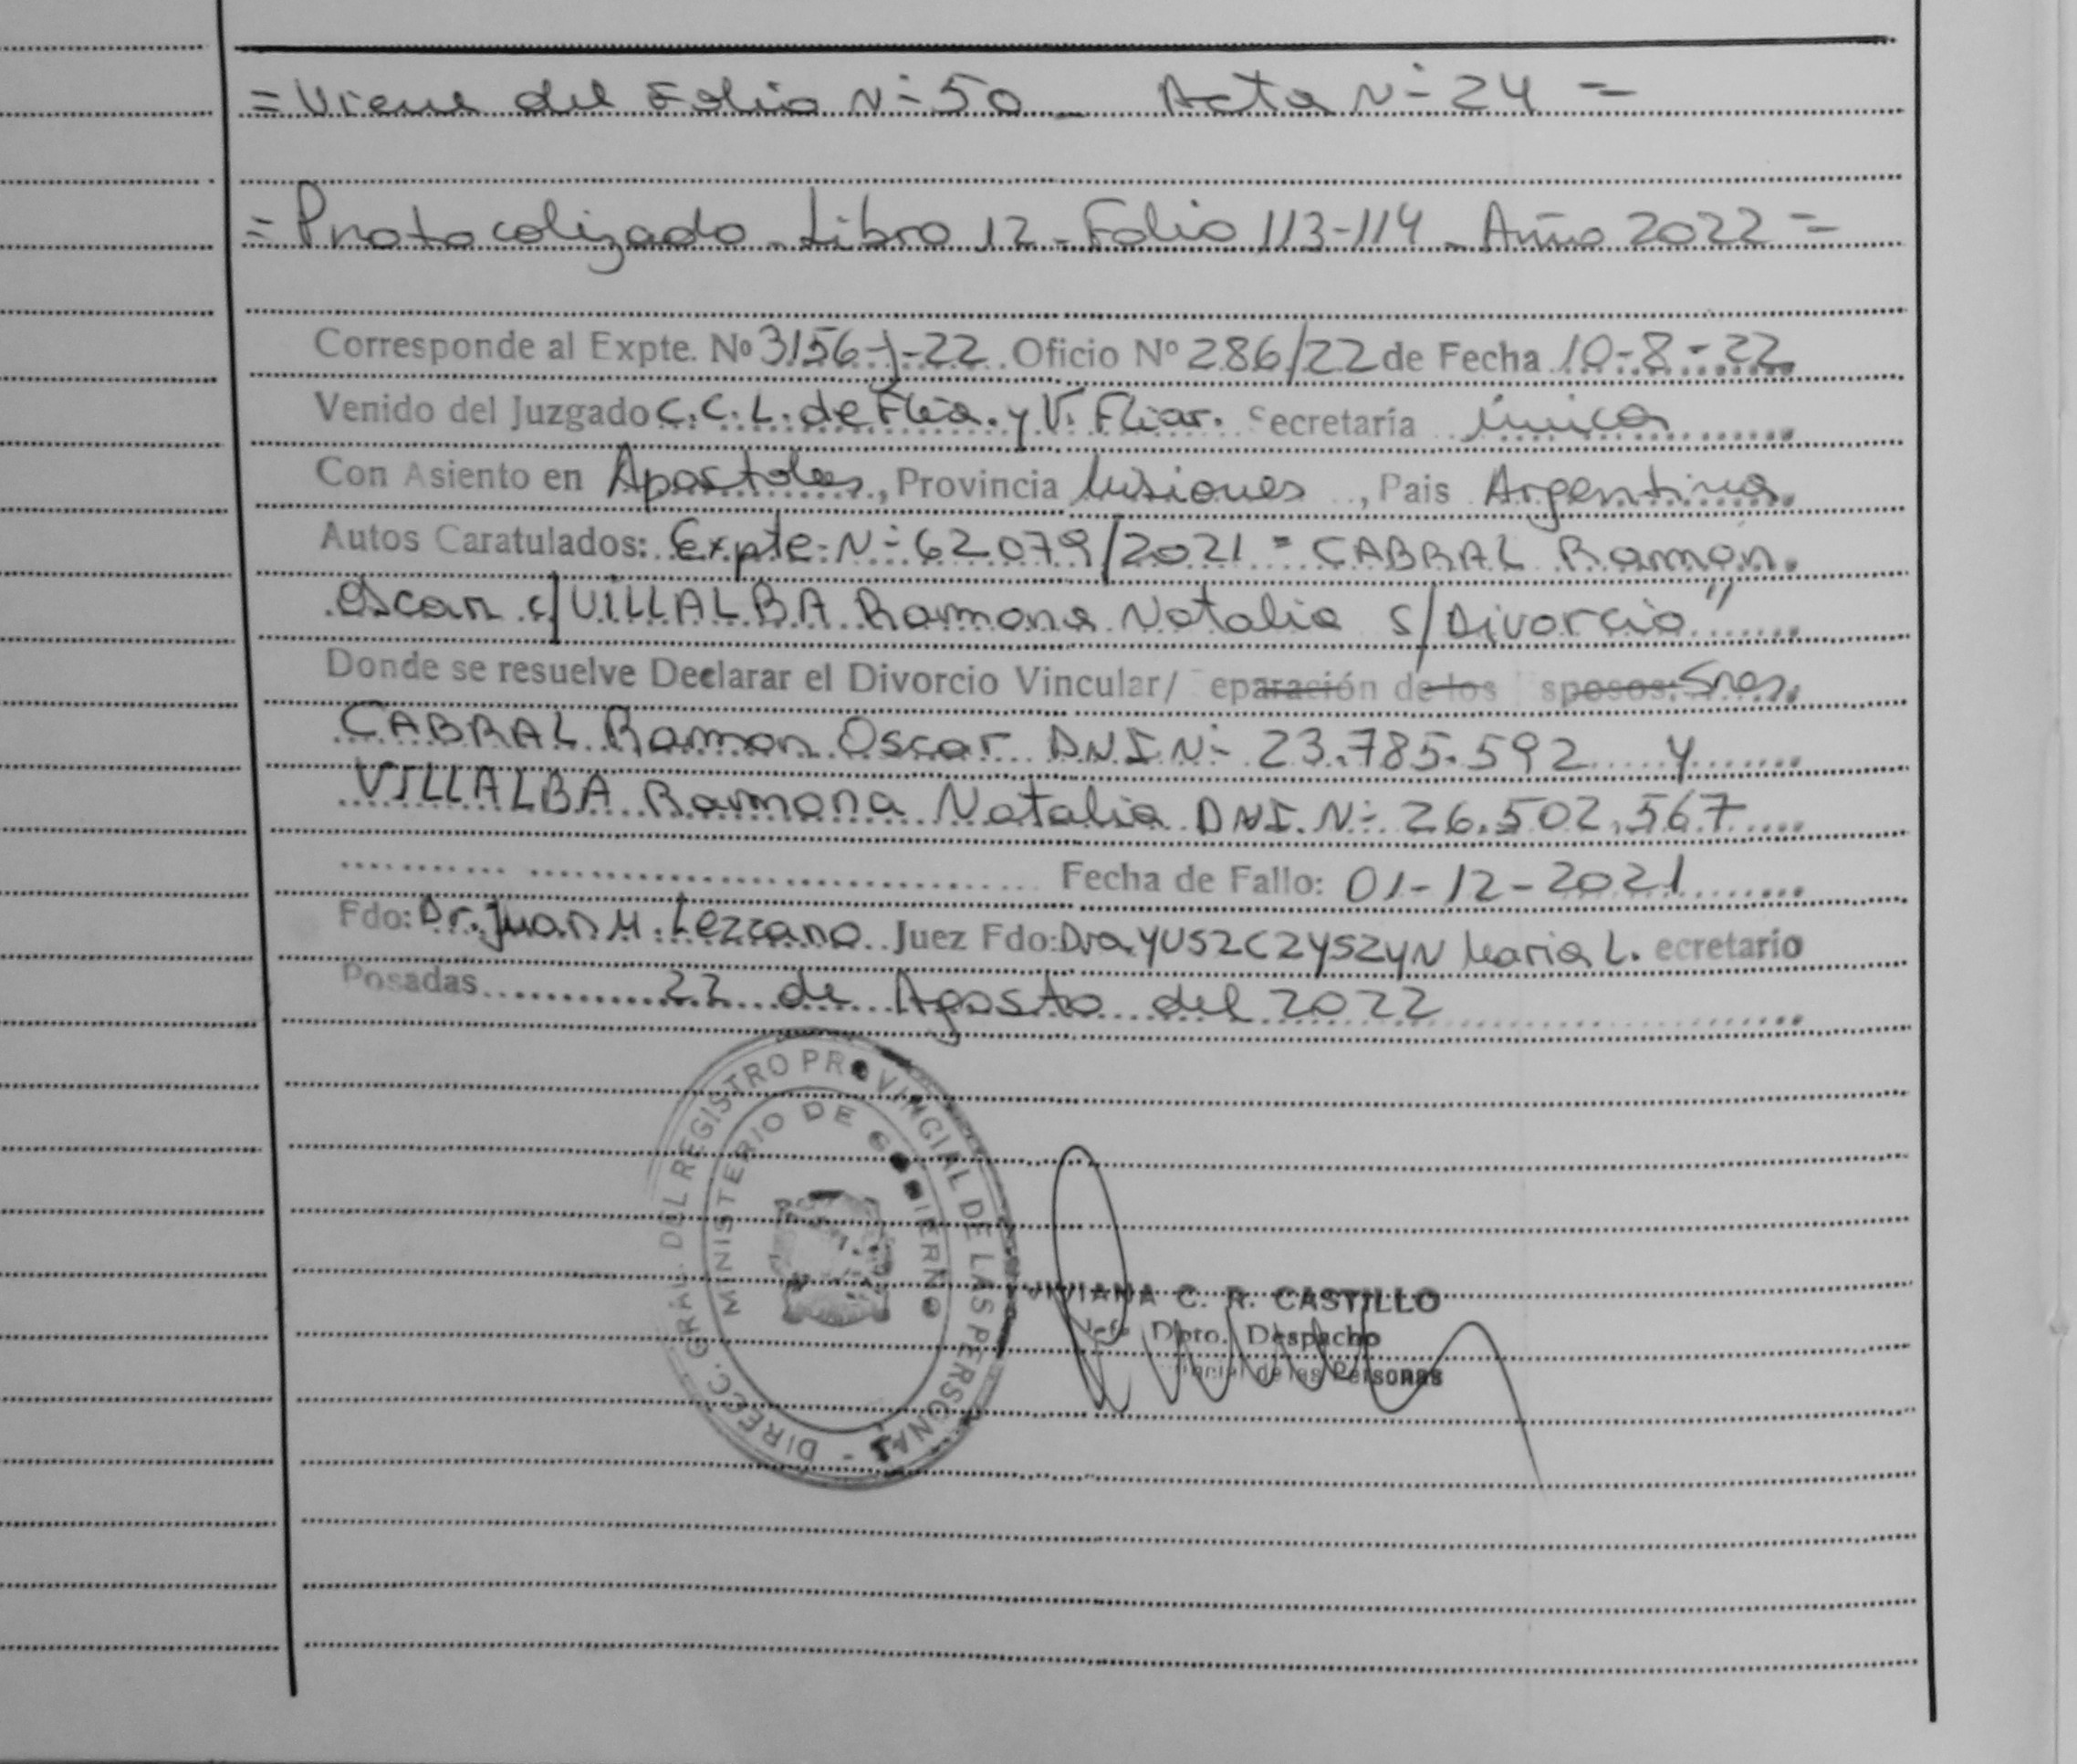 = Viene del Folio N- 50 _ Acta N- 24 =
= Protocolizado - Libro 12 - Folio 113-114 - Año 2022 =
Corresponde al Expte. Nº 3156-J-22. Oficio Nº 286/22 de Fecha 10-8-22
Venido del Juzgado C.C.L. de Flia. y V. Fliar. Secretaría Única
Con Asiento en Apostoles, Provincia Misiones, Pais Argentina
Autos Caratulados: Expte. N- 62.079/2021 "CABRAL Ramon
Oscar c/ VILLALBA Ramona Natalia s/ Divorcio"
Donde se resuelve Declarar el Divorcio Vincular/ eparación de los sposos: Sres.
CABRAL Ramon Oscar D.N.I. N- 23.785.592 y
VILLALBA Ramona Natalia DNI. N- 26.502.567
Fecha de Fallo: 01-12-2021
Fdo: Dr. Juan M. Lezcano Juez Fdo: Dra. YUSZCZYSZYN Maria L. ecretario
Posadas 22 de Agosto del 2022
DIRECC. GRAL. DEL REGISTRO PROVINCIAL DE LAS PERSONAS -
MINISTERIO DE GOBIERNO
VIVIANA C. R. CASTILLO
Jefe Dpto. Despacho
de las Personas